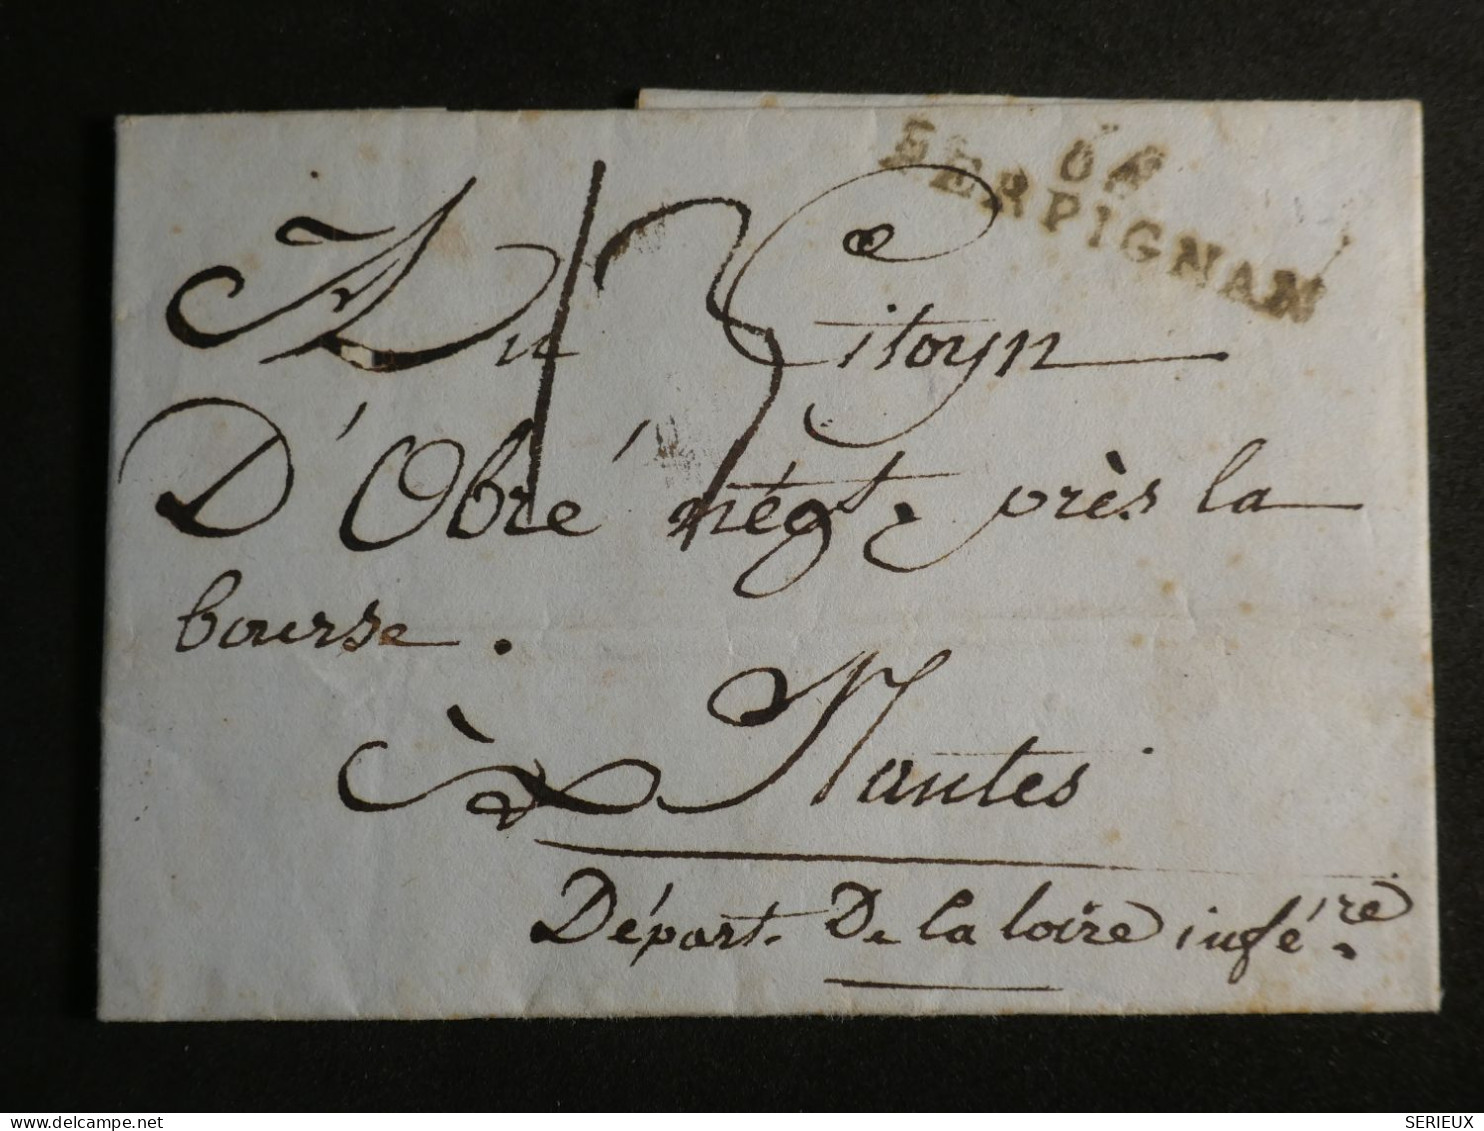 64
PERPIGNAN
13
Au Citoyn
D'Obré négt. près la
bourse.
à Nantes
Départ. De la loire infére.
SERIEUX